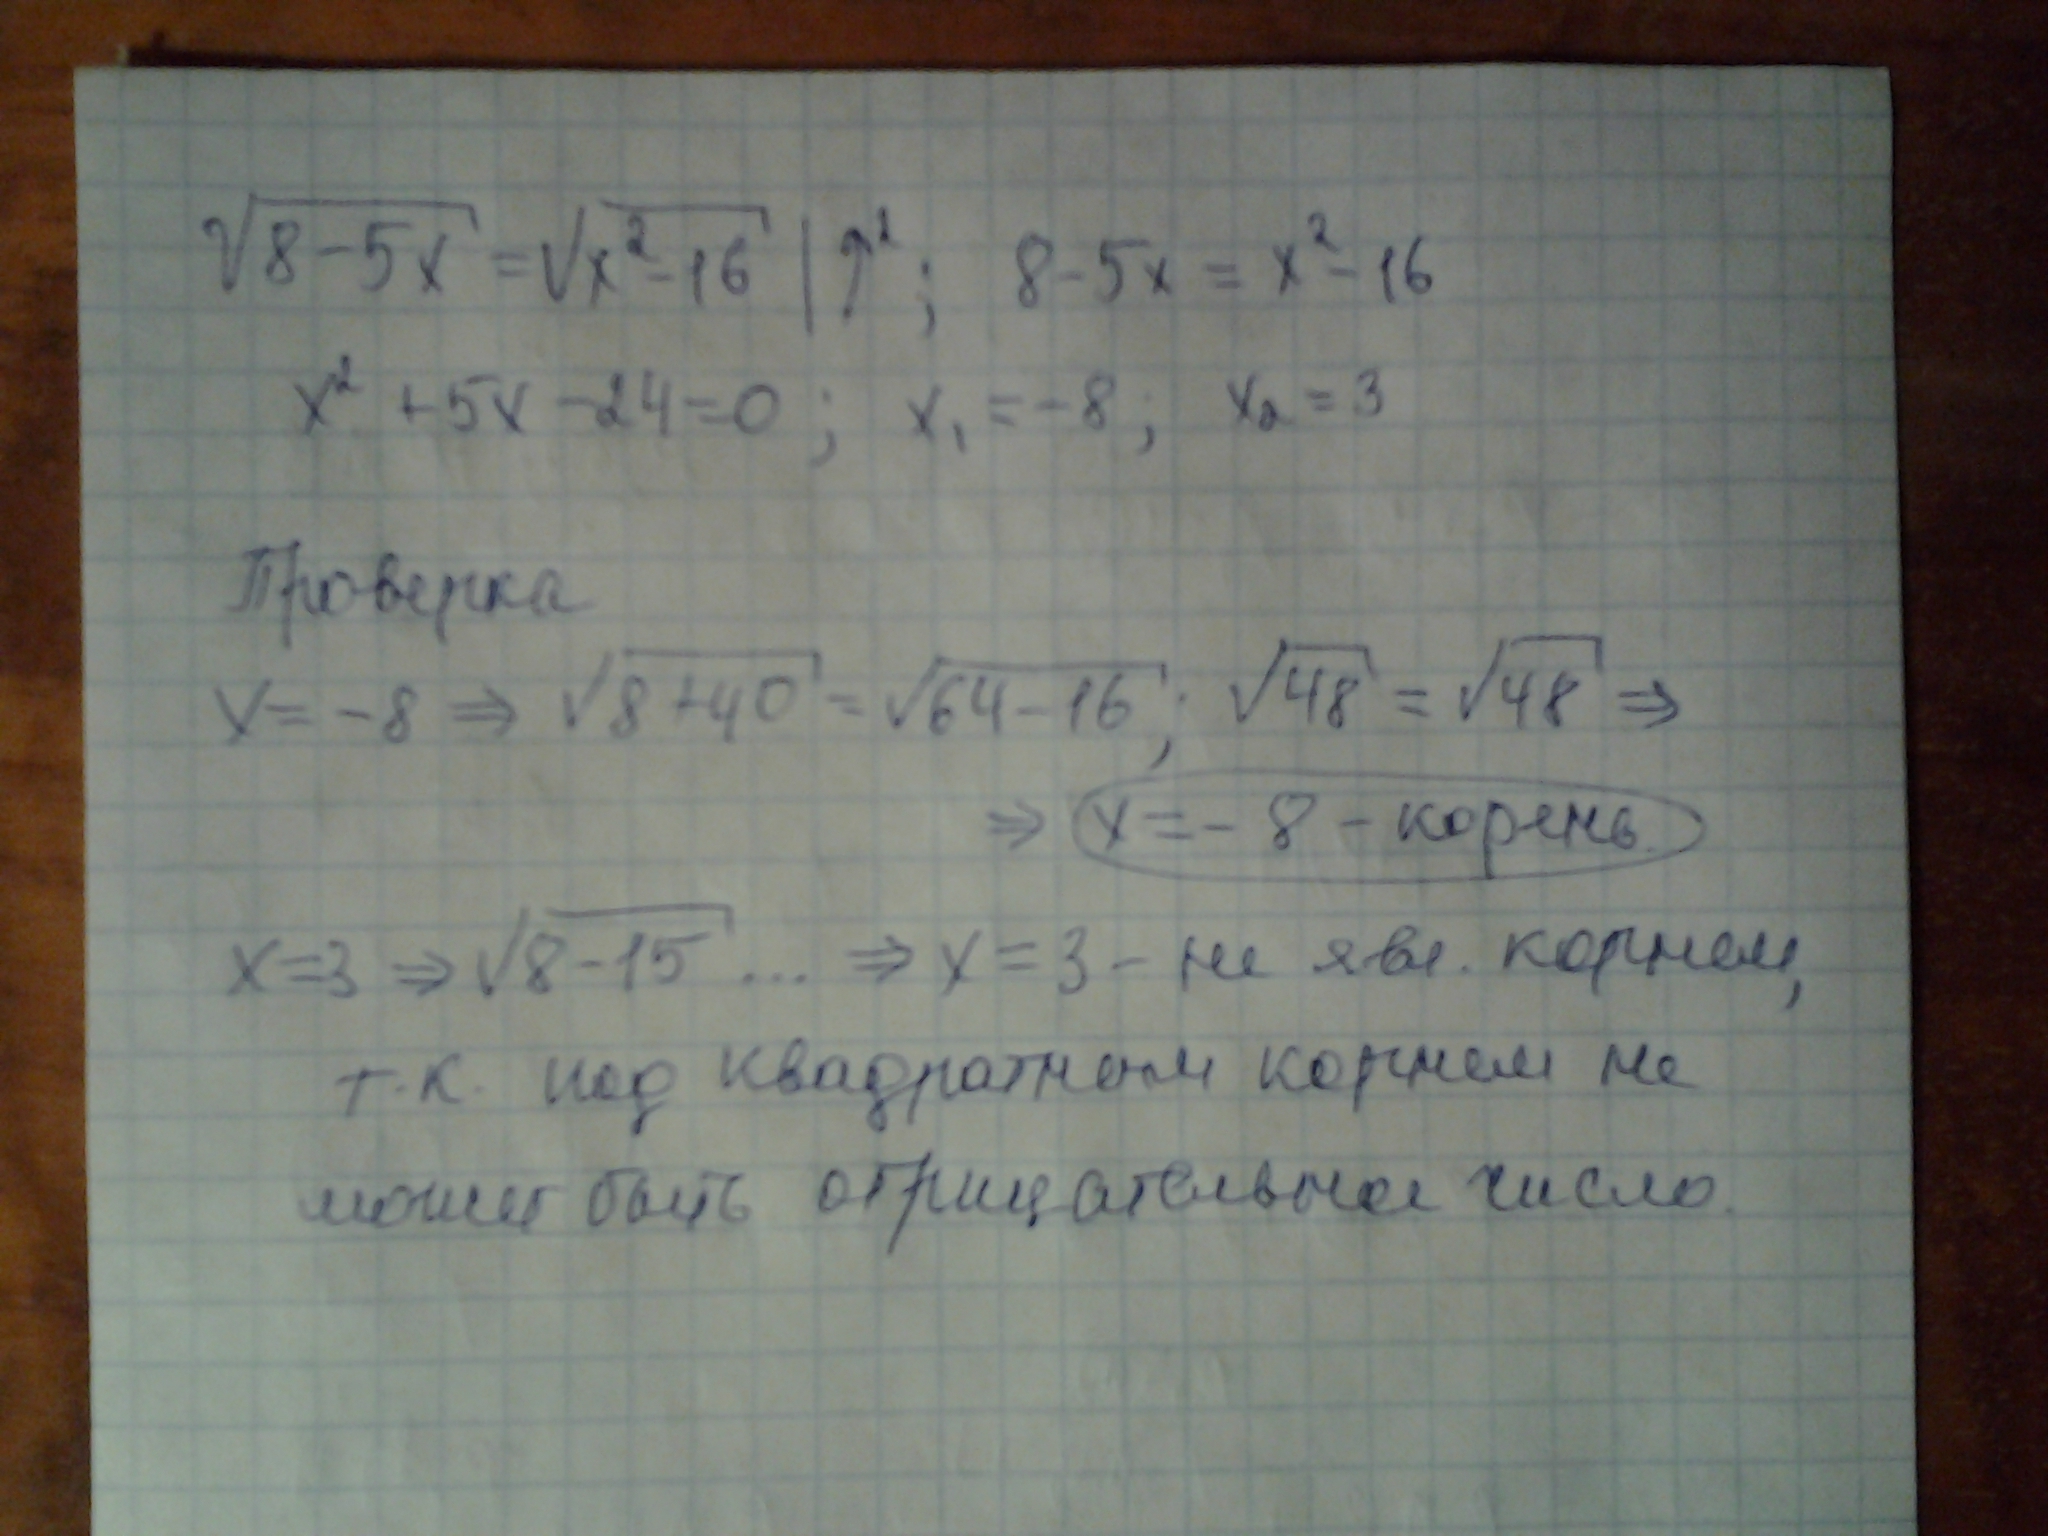 √(8-5x) = √(x²-16) | ↑² ; 8-5x = x²-16
x² +5x -24=0 ; x₁ = -8 ; x₂ = 3
Проверка
x = -8 ⇒ √(8+40) = √(64-16) ; √48 = √48 ⇒
⇒ x = -8 - корень
x=3 ⇒ √(8-15) ... ⇒ x = 3 - не явл. корнем,
т.к. под квадратным корнем не
может быть отрицательное число.